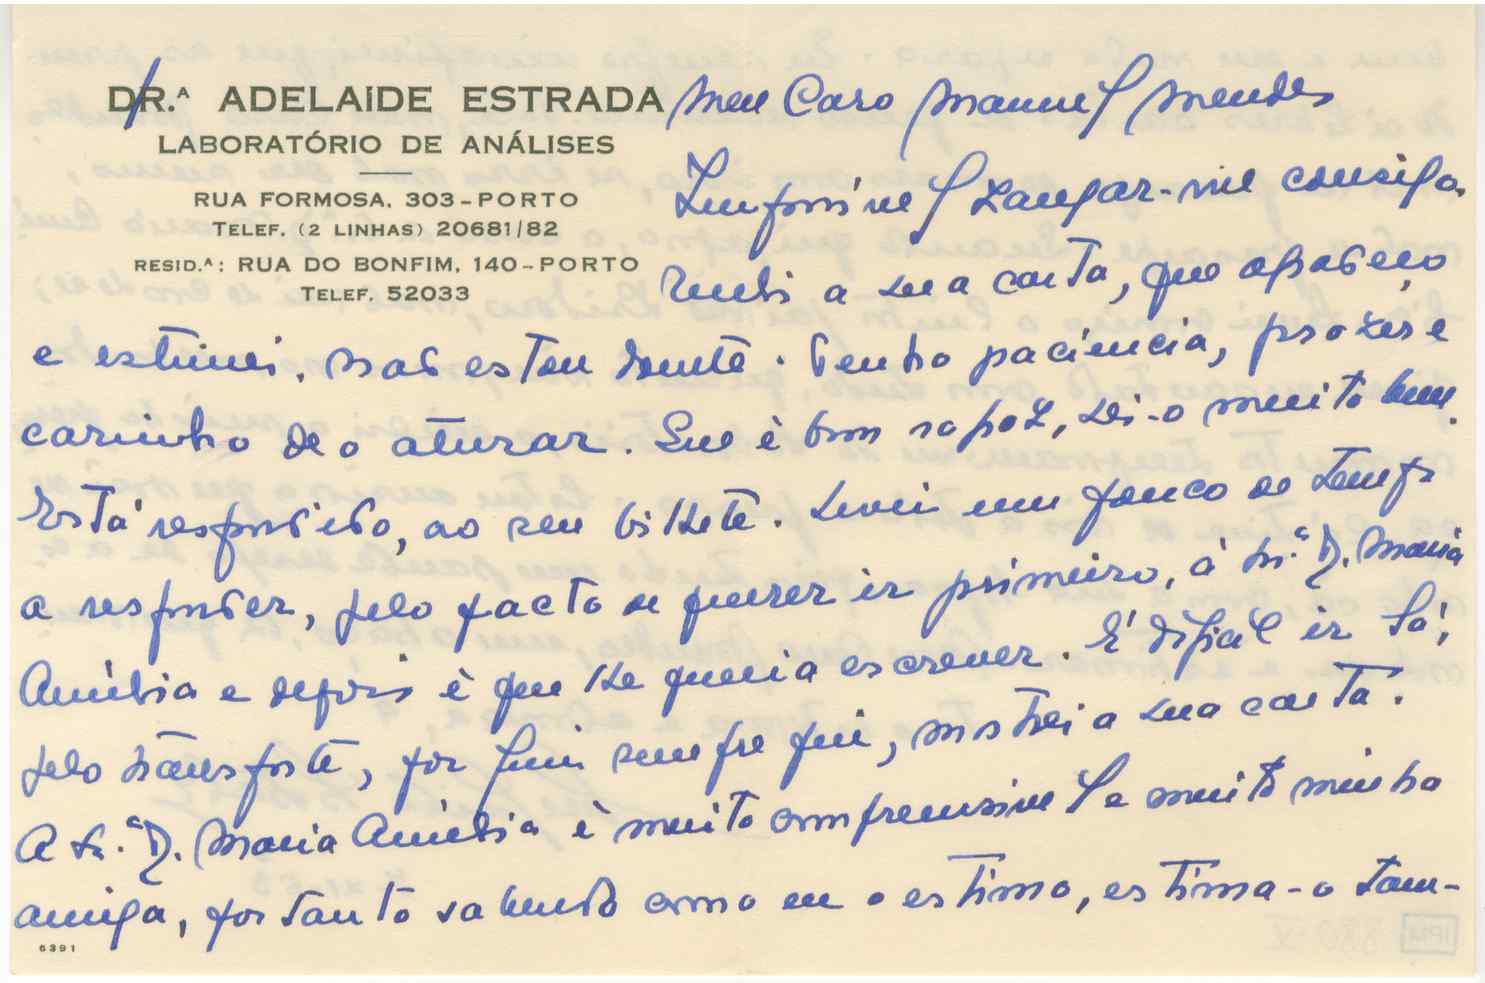 DR.ª ADELAIDE ESTRADA
LABORATÓRIO DE ANÁLISES
RUA FORMOSA, 303-PORTO
TELEF. (2 LINHAS) 20681/82
RESID.ª: RUA DO BONFIM, 140-PORTO
TELEF. 52033
Meu Caro Manuel Mendes
Impossível zangar-me consigo.
Recebi a sua carta, que agradeço
e estimei. Não estou doente. Tenho paciência, prazer e
carinho de o aturar. Que é bom rapaz, sei-o muito bem.
Está respondido, ao seu bilhete. Levei um pouco de tempo
a responder, pelo facto de querer ir primeiro, à Sr.ª D. Maria
Amélia e depois é que lhe queria escrever. É difícil ir lá,
pelo transporte, por fim sempre fui, mostrei a sua carta.
A Sr.ª D. Maria Amélia é muito compreensível e muito minha
amiga, portanto sabendo como eu o estimo, estima-o tam-
6391